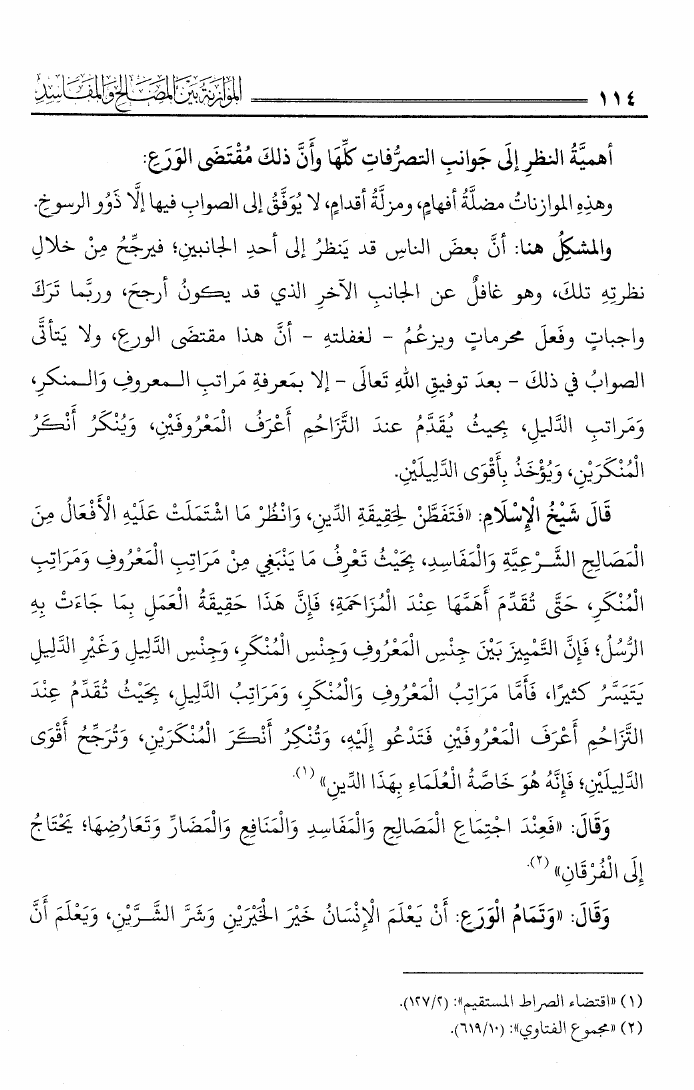 ١١٤
الموازنة بين المصالح والمفاسد
أهميَّةُ النظرِ إلَى جَوانبِ التصرُّفاتِ كلِّهَا وأَنَّ ذلكَ مُقْتَضَى الوَرَعِ:
وهذِهِ الموازناتُ مضلَّةُ أفهامٍ، ومزلَّةُ أقدامٍ، لا يُوَفَّقُ إلى الصوابِ فيها إلَّا ذَوُو الرسوخِ.
والمشكِلُ هنا: أنَّ بعضَ الناسِ قد يَنظرُ إلى أحدِ الجانبينِ؛ فيرجِّحُ مِنْ خلالِ
نظرتِهِ تلكَ، وهو غافلٌ عن الجانبِ الآخرِ الذي قد يكونُ أرجحَ، وربَّما تَرَكَ
واجباتٍ وفَعلَ محرماتٍ ويزعُمُ - لغفلتهِ - أنَّ هذا مقتضَى الورعِ، ولا يَتأتَّى
الصوابُ في ذلكَ - بعدَ توفيقِ اللهِ تعالَى - إلا بمَعرفةِ مَراتبِ الـمعروفِ والـمنكرِ،
وَمَراتبِ الدَّليلِ، بحيثُ يُقَدَّمُ عندَ التَّزَاحُمِ أَعْرَفُ الْمَعْرُوفَيْنِ، وَيُنْكَرُ أَنْكَرُ
الْمُنْكَرَيْنِ، وَيُؤْخَذُ بِأَقْوَى الدَّلِيلَيْنِ.
قَالَ شَيْخُ الْإِسْلَامِ: «فَتَفَطَّنْ لِحَقِيقَةِ الدِّينِ، وَانْظُرْ مَا اشْتَمَلَتْ عَلَيْهِ الْأَفْعَالُ مِنَ
الْمَصَالِحِ الشَّـرْعِيَّةِ وَالْمَفَاسِدِ، بِحَيْثُ تَعْرِفُ مَا يَنْبَغِي مِنْ مَرَاتِبِ الْمَعْرُوفِ وَمَرَاتِبِ
الْمُنْكَرِ، حَتَّى تُقَدِّمَ أَهَمَّهَا عِنْدَ الْمُزَاحَمَةِ؛ فَإِنَّ هَذَا حَقِيقَةُ الْعَمَلِ بِمَا جَاءَتْ بِهِ
الرُّسُلُ؛ فَإِنَّ التَّمْيِيزَ بَيْنَ جِنْسِ الْمَعْرُوفِ وَجِنْسِ الْمُنْكَرِ، وَجِنْسِ الدَّلِيلِ وَغَيْرِ الدَّلِيلِ
يَتَيَسَّرُ كَثِيرًا، فَأَمَّا مَرَاتِبُ الْمَعْرُوفِ وَالْمُنْكَرِ، وَمَرَاتِبُ الدَّلِيلِ، بِحَيْثُ تُقَدِّمُ عِنْدَ
التَّزَاحُمِ أَعْرَفَ الْمَعْرُوفَيْنِ فَتَدْعُو إِلَيْهِ، وَتُنْكِرُ أَنْكَرَ الْمُنْكَرَيْنِ، وَتُرَجِّحُ أَقْوَى
الدَّلِيلَيْنِ؛ فَإِنَّهُ هُوَ خَاصَّةُ الْعُلَمَاءِ بِهَذَا الدِّينِ» (١).
وَقَالَ: «فَعِنْدَ اجْتِمَاعِ الْمَصَالِحِ وَالْمَفَاسِدِ وَالْمَنَافِعِ وَالْمَضَارِّ وَتَعَارُضِهَا؛ يَحْتَاجُ
إِلَى الْفُرْقَانِ» (٢).
وَقَالَ: «وَتَمَامُ الْوَرَعِ: أَنْ يَعْلَمَ الْإِنْسَانُ خَيْرَ الْخَيْرَيْنِ وَشَرَّ الشَّـرَّيْنِ، وَيَعْلَمَ أَنَّ
(١) «اقتضاء الصراط المستقيم»: (١٢٧/٢).
(٢) «مجموع الفتاوي»: (٦١٩/١٠).